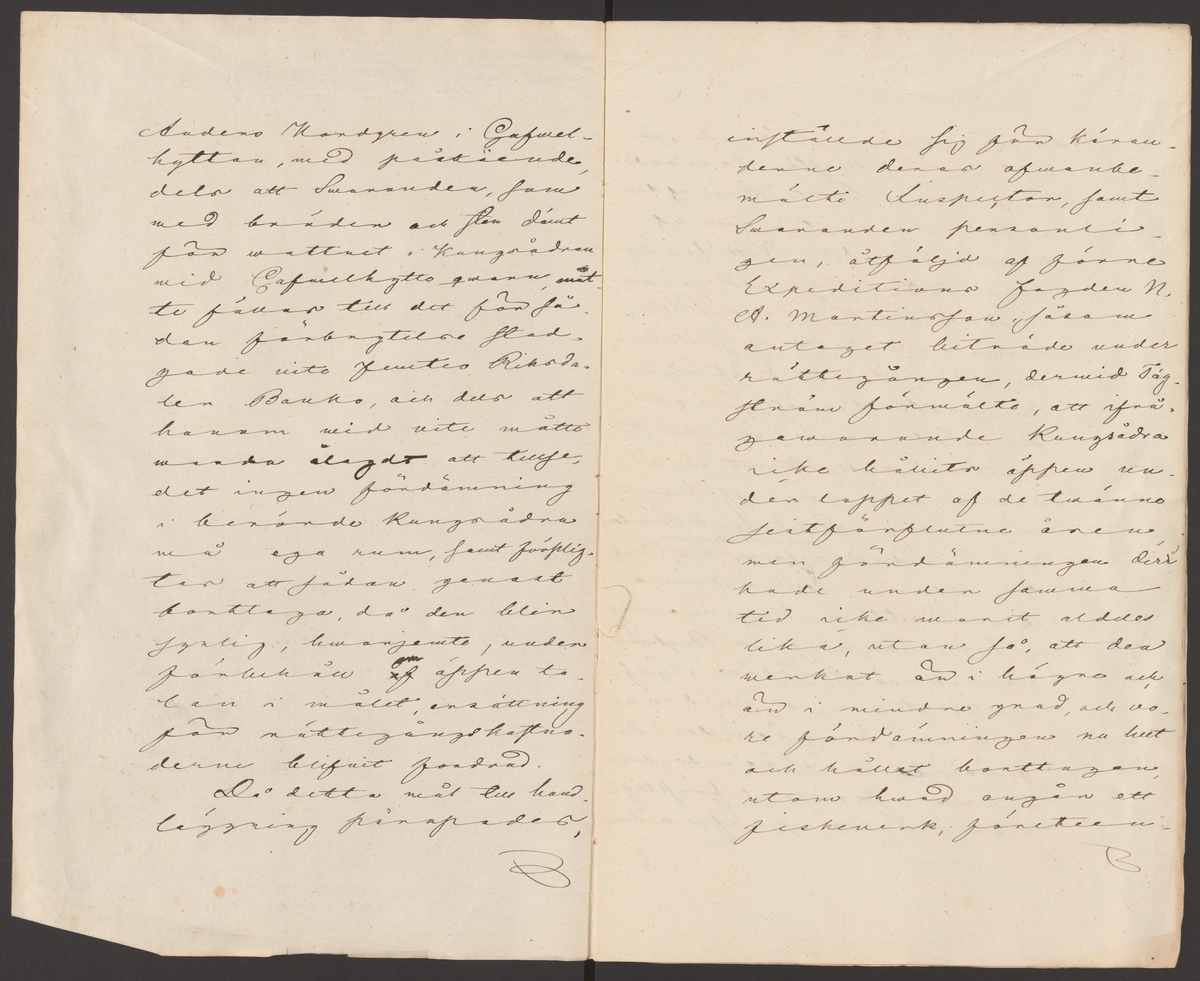 Anders Nordgren i Gafvel-
hyttan, med påstående,
dels att Swaranden, som
med bräder och sten dämt
för wattnet i Kungsådran
vid Gafvelhytte qwarn, måt-
te fällas till det för så-
dan förbrytelse stad-
gade vite femtio Riksda-
ler Banko, och dels att
honom vid vite måtte
warda ålagdt att tillse,
det ingen fördämning
i berörde Kungsådra
må ega rum, samt förplig-
tas att sådan genast
borttaga, då den blir
synlig, hwarjemte, under
förbehåll om öppen ta-
lan i målet, ersättning
för rättegångskostna-
derne blifvit fordrad.
Då detta mål till hand-
läggning påropades,
instälde sig för Käran-
derne deras ofwanbe-
mälte Inspector, samt
Swaranden personli-
gen, åtföljd af förre
Expeditions fogden N.
A. Martinsson, såsom
antaget biträde under
rättegången, dervid Täg-
ström förmälte, att ifrå-
gawarande Kungsådra
icke hållits öppen un-
der loppet af de twänne
sistförflutne åren
men fördämningen derå
hade under samma
tid icke warit alldeles
lika, utan så, att den
verkat än i högre och
än i mindre grad, och wo-
re fördämningen nu helt
och hållet borttagen,
utom hwad angår ett
fiskeverk, företeen-